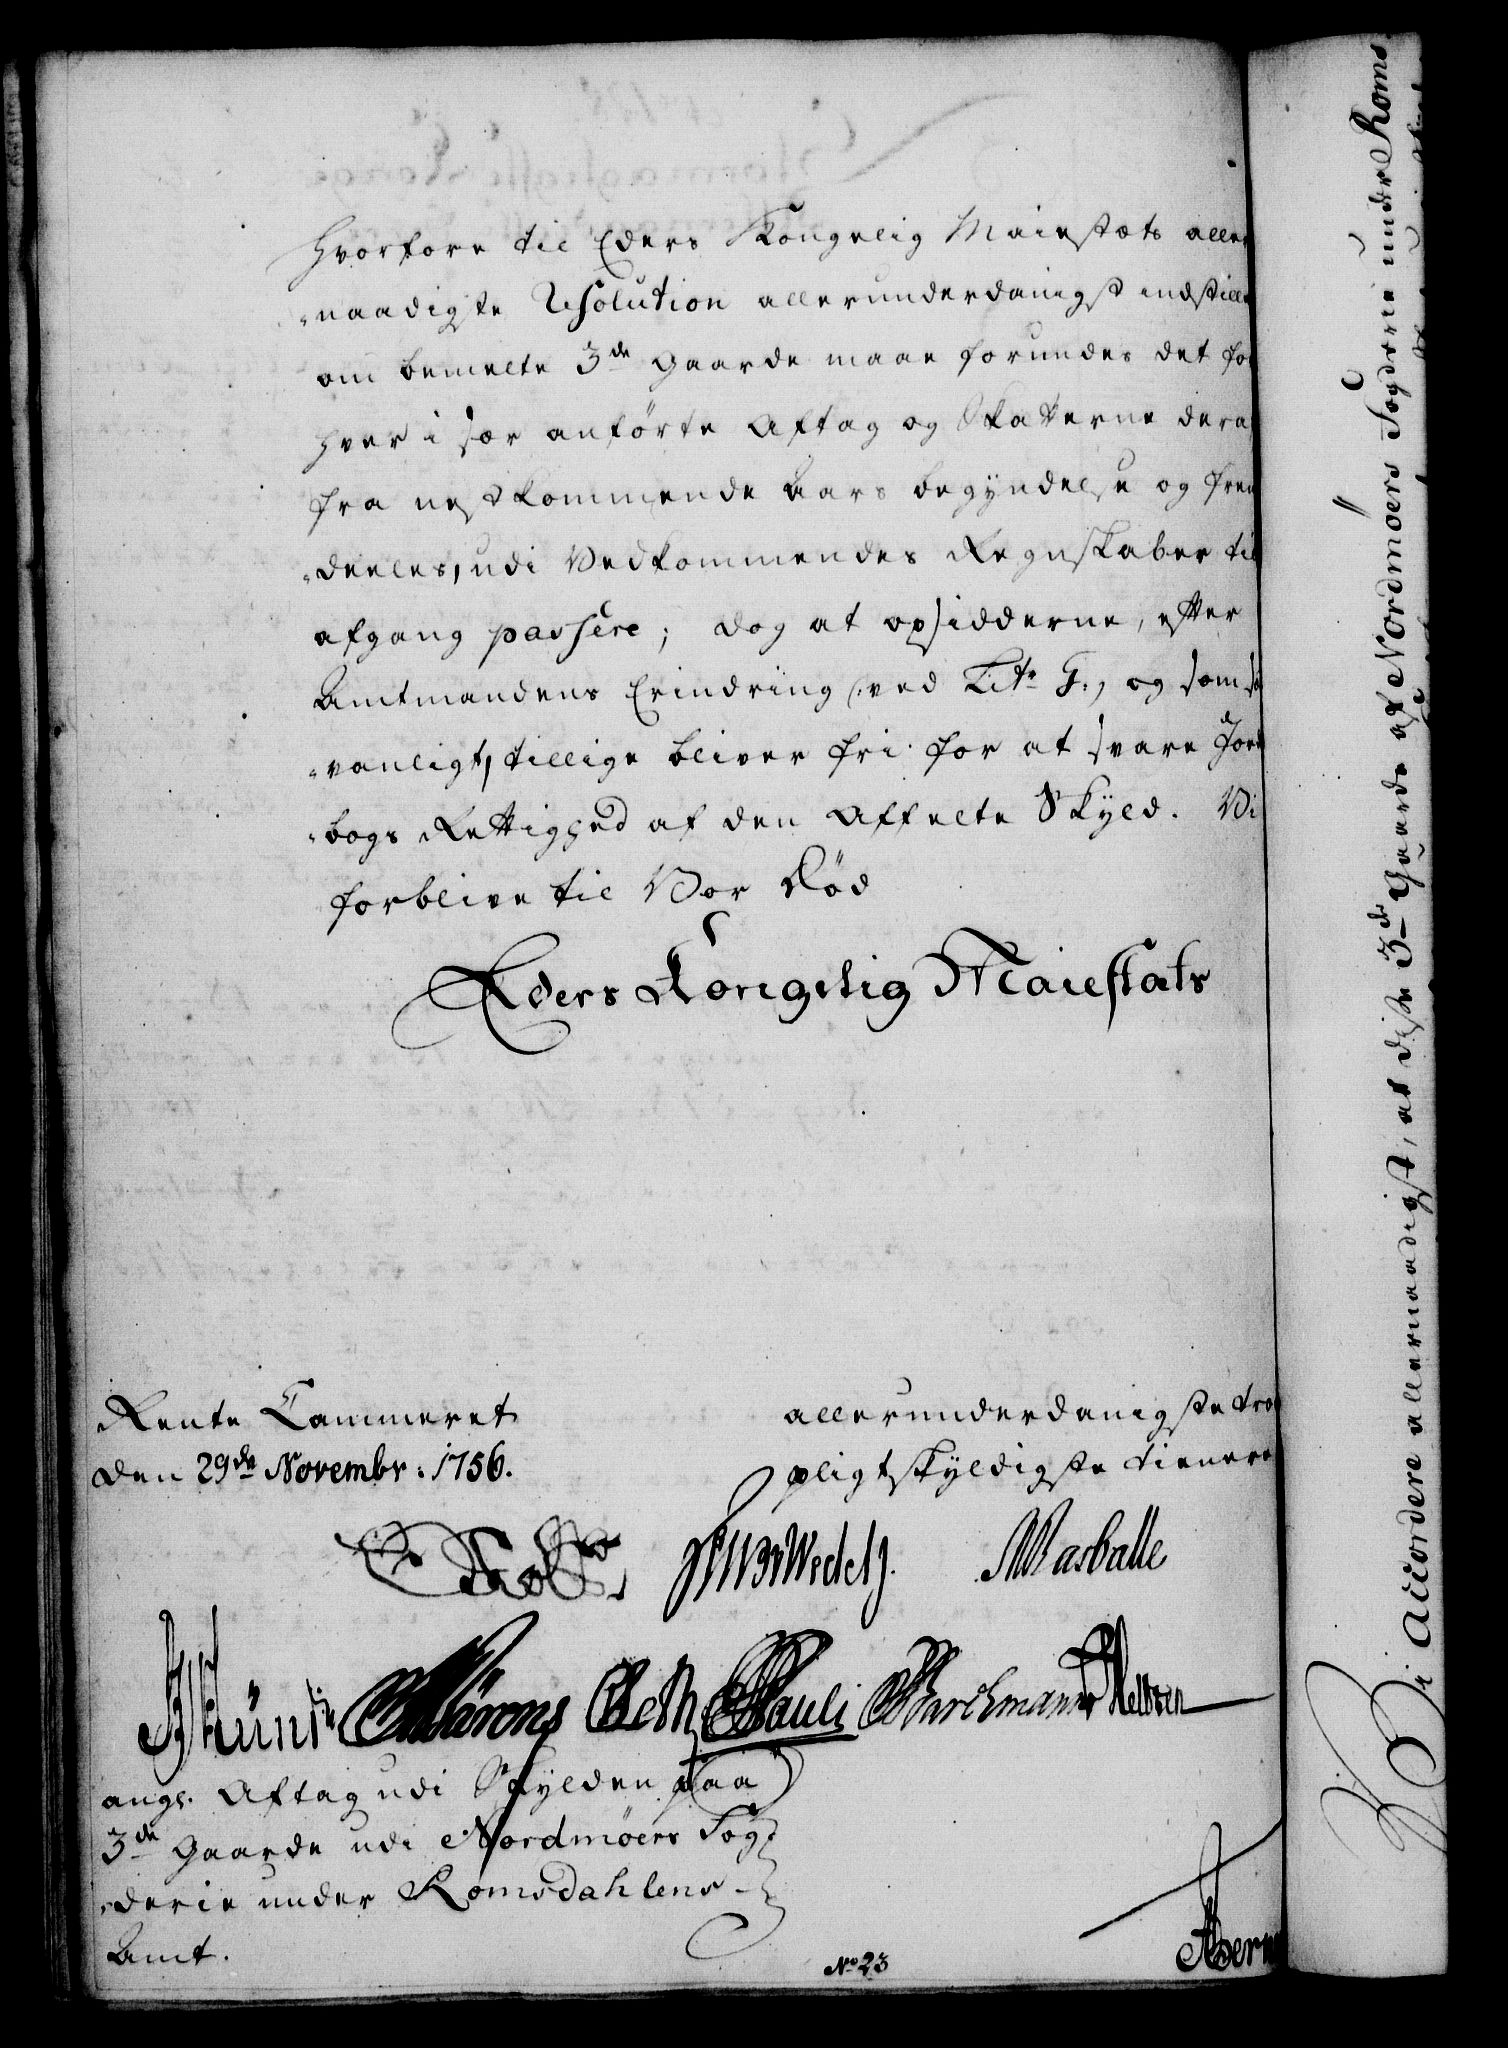 hvorfore til Eders Kongelig Maiestæts aller
-naadigste Resolution allerunderdanigst indstilles
om bemelte 3de Gaarde maae forundes det for
hver i sær anførte Aftag og Skatterne deraf
fra nestkommende Aars begyndelse og frem
-deeles, udi Vedkommendes Regnskaber til
afgang passere; dog at opsidderne, efter
Amtmandens Erindring (:ved Litr F:, og som sæd
-vanligt, tillige bliver fri for at svare Jorde
-bogs Rettighed af den Affelte Skyld. Vi
forblive til Vor Død
Eders Kongelig Maiestæts
Rente Cammeret
den 29de Novembr: 1756.
allerunderdanigste tro
pligtskyldigste tienere
Wedelj. Rasballe
Pauli Barchmann
ang: Aftag udi Skylden paa
3de Gaarde udi Nordmøers Fog
-derie under Romsdahlens
Amt.
No 23
Vi Accordere allernaadigst, at disse 3de Gaarde af Nordmøers Fogderie under Roms